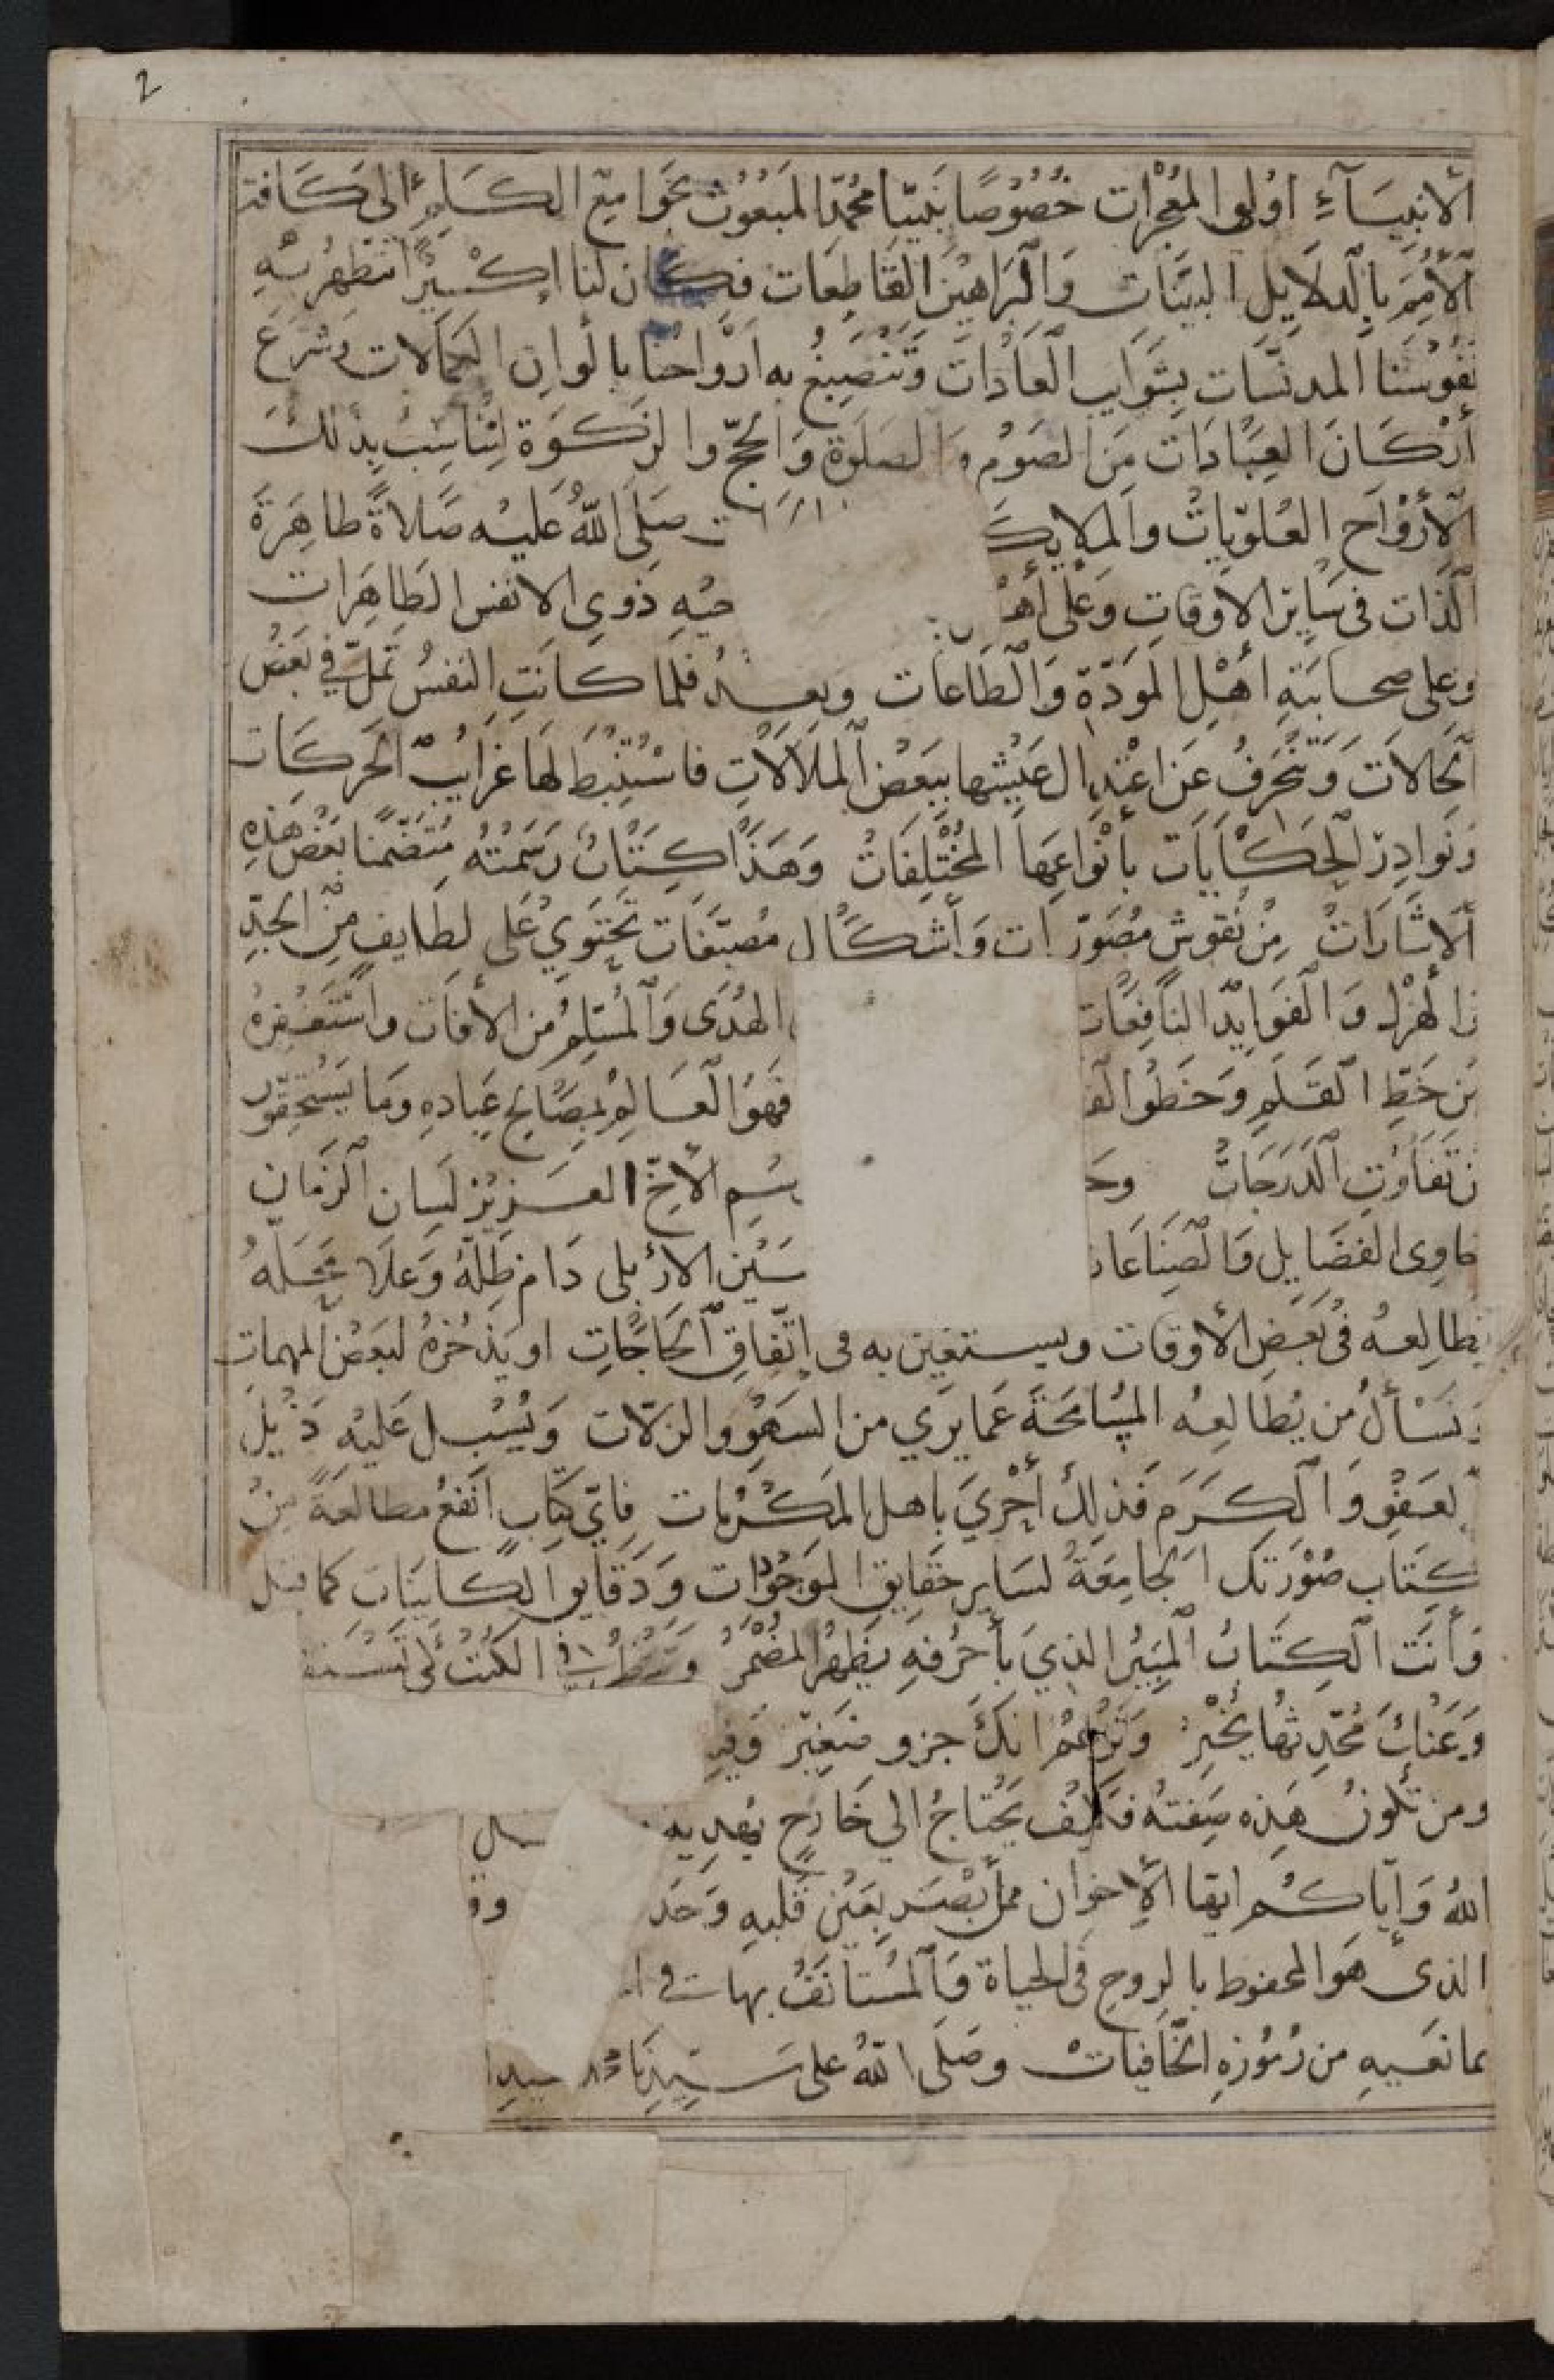 2
الأنبيَآءِ اوُلى المعُجزات خصُوصًا نبَيّنا محمّد المبَعُوث بجَوامِع الكَلِم إلى كَافة
الأمَم بالدلايل البيّنات وَالبَراهيْن القَاطِعَات فكان لنا إكْسيرًا تتَطهرُ بهِ
نفُوسُنا المدنّسَات بشَوايب العَادَات وَتنصَبغُ به ارْواحُنا بالوان الكمالات وشرَعَ
أرْكانَ العبَادَات مِن الصَومِ والصلَوة وَالحجّ والزكوَة لتُناسِبُ بذلكَ
الأرْوَاح العُلويات والملايكَ ت صَلى اللهُ عَليْه صَلاةً طاهِرَة
الذات فى سَاير الاوقاتِ وَعَلى أهْـ حبْهِ ذوى الانفس الطاهِرَات
وعلى صحابتهِ أهْل الموَدّة وَالطَاعَات وبعـدُ فلما كانَت النفسُ تملّ في بعَض
الحَالات وَتنحَرفُ عَن اعْتدِال عَيْشها ببَعْض الملالات فاسْتُنبط لها غرَايبُ الحَركات
ونوادِر الحكايَات بأنواعِهَا المختلفات وَهَذا كتابٌ رَسَمتُهُ متضمّنا بعَض هَذهِ
الاشارات مِن نقوش مصَوّرات وَأشكال مصَبّغات تحتَوي عَلى لطايف مِن الجدِّ
والهزل وَالفوَايد النَافِعَات الهُدَى وَالمُسَلِم من الآفات واسْتَغفِرهُ
مِن خَطِّ القلَم وَخطو الق فهوَ العَالِم بمصَالِح عبَادِهِ وَما يسَتحقّون
من تفاوُتِ الدَرَجَات وحَـ بسْم الأخّ العزيز لسَان الزمَان
حاوى الفضايل وَالصِنَاعَات سَيْن الاربلى دَام ظلّهُ وَعَلا محَلهُ
يطالِعهُ فى بَعض الأوقات ويستعين به فى اتفاق الحَاجَات او يذخرُهُ لبَعض المهمات
ونسَألُ مَن يُطالعهُ المسَامحَةَ عَما يرَي من السَهو والزلات وَيُسْبل عَليْه ذَيْل
العَفو وَالكرَم فذلكَ أحْرَي باهل المكرُمات فاىّ كتابٍ انفعُ مطالعَةً مِنْ
كتاب صُورَتك الجامعَة لسَاير حقايق الموَجُودَات وَدَقايق الكاينَاتِ كما قيل
وَأنتَ الكتابُ المبيْن الذي بأحرُفهِ يَظهرُ المضْمَرُ
وَعَنْكَ مُحَدّثها يُخبرُ وَتزعمُ انكَ جزو صَغير وَفيـ
ومن تكون هَذِه صِفتهُ فكيف يحتاجُ الي خَارجٍ يهديه
اللهُ وَإياكم ايها الإخوان ممن أبْصَر بعَيْن قلبهِ وَحَد
الذى هوَ المحفوط بالروح فى الحياة وَالمستانفُ بها
بما نعَيهِ من رُموُزهِ الخَافيات وصَلى اللهُ على سَيّدِنا محمد